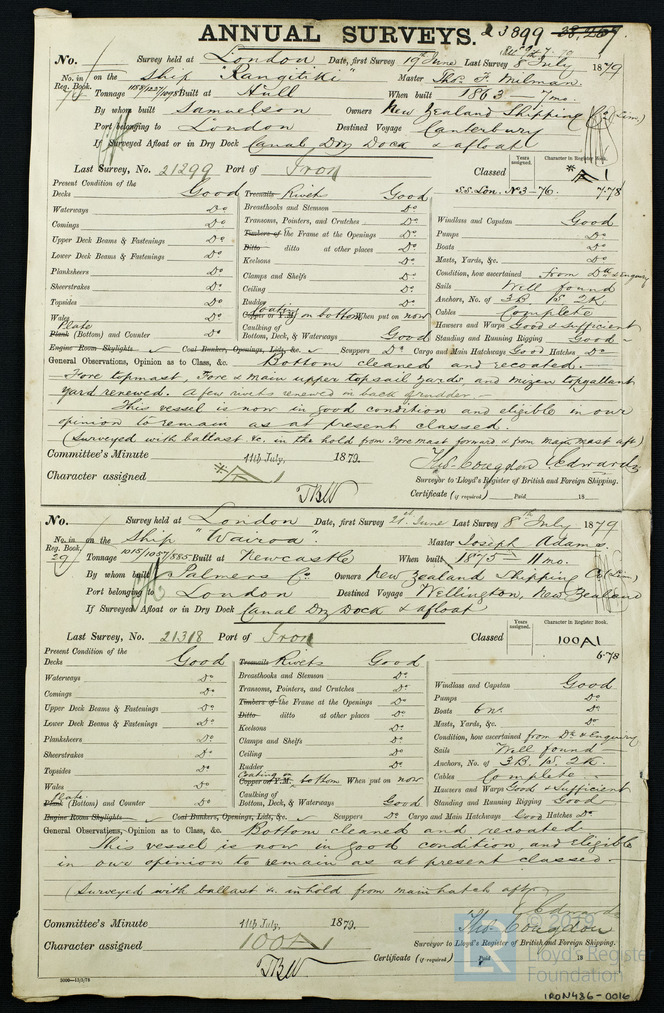 ANNUAL SURVEYS. 23899
No. Survey held at London Date, first Survey 19th June Last Survey 8th July 1879
No. in Reg. Book. on the Ship "Rangitiki" Master Thos. F. Milman.
Tonnage 1188/1227/1098 Built at Hull When built 1863 - 7 mo.
By whom built Samuelson Owners New Zealand Shipping Co (Lim)
Port belonging to London Destined Voyage Canterbury
If Surveyed Afloat or in Dry Dock Canal Dry Dock & afloat
Years assigned. Character in Register Book.
Last Survey, No. 21299 Port of Iron Classed A1
S.S. Lon. No 3-76. 7-78
Present Condition of the
Decks Good Treenails Rivets Good
Waterways Do Breasthooks and Stemson Do Windlass and Capstan Good
Comings Do Transoms, Pointers, and Crutches Do Pumps Do
Upper Deck Beams & Fastenings Do Timbers of the Frame at the Openings Do Boats Do
Lower Deck Beams & Fastenings Do Ditto ditto at other places Do Masts, Yards, &c. Do
Planksheers Do Keelsons Do Condition, how ascertained from Do & Enquiry
Sheerstrakes Do Clamps and Shelfs Do Sails Well found
Topsides Do Ceiling Do Anchors, No. of 3B. 1S. 2K
Wales Do Rudder Do Cables Complete
Plate Plank (Bottom) and Counter Do Coating Copper or Y.M. on bottom When put on now Hawsers and Warps Good & Sufficient
Caulking of Bottom, Deck, & Waterways Good Standing and Running Rigging Good
Engine Room Skylights Coal Bunker, Openings, Lids, &c. Scuppers Do Cargo and Main Hatchways Good Hatches Do
General Observations, Opinion as to Class, &c. Bottom cleaned and recoated.
Fore topmast, Fore & main upper topsail yards, and mizen topgallant
yard renewed. A few rivets renewed in back of rudder.
This vessel is now in good condition and eligible in our
opinion to remain as at present classed.
(Surveyed with ballast &c. in the hold from Foremast forward & from main mast aft)
Committee's Minute 11th July, 1879. Thos. Congdon Edwards
Character assigned A1 Surveyor to Lloyd's Register of British and Foreign Shipping.
TBW Certificate (if required) Paid 18
No. Survey held at London Date, first Survey 21st June Last Survey 8th July 1879
No. in Reg. Book. 29 on the Ship "Wairoa" Master Joseph Adams.
Tonnage 1015/1057/885 Built at Newcastle When built 1875 - 11 mo.
By whom built Palmers Co Owners New Zealand Shipping Co (Lim)
Port belonging to London Destined Voyage Wellington, New Zealand
If Surveyed Afloat or in Dry Dock Canal Dry Dock & afloat
Years assigned. Character in Register Book.
Last Survey, No. 21318 Port of Iron Classed 100A1
6-78
Present Condition of the
Decks Good Treenails Rivets Good
Waterways Do Breasthooks and Stemson Do Windlass and Capstan Good
Comings Do Transoms, Pointers, and Crutches Do Pumps Do
Upper Deck Beams & Fastenings Do Timbers of the Frame at the Openings Do Boats 6 no. Do
Lower Deck Beams & Fastenings Do Ditto ditto at other places Do Masts, Yards, &c. Do
Planksheers Do Keelsons Do Condition, how ascertained from Do & Enquiry
Sheerstrakes Do Clamps and Shelfs Do Sails Well found
Topsides Do Ceiling Do Anchors, No. of 3B. 1S. 2K.
Wales Do Rudder Do Cables Complete
Plate Plank (Bottom) and Counter Do Coating on Copper or Y.M. bottom When put on now Hawsers and Warps Good & Sufficient
Caulking of Bottom, Deck, & Waterways Good Standing and Running Rigging Good
Engine Room Skylights Coal Bunkers, Openings, Lids, &c. Scuppers Do Cargo and Main Hatchways Good Hatches Do
General Observations, Opinion as to Class, &c. Bottom cleaned and recoated
This vessel is now in good condition, and eligible
in our opinion to remain as at present classed
(Surveyed with ballast &c. in hold from main hatch aft)
Edwards
Committee's Minute 11th July, 1879. Thos. Congdon
Character assigned 100A1 Surveyor to Lloyd's Register of British and Foreign Shipping.
TBW Certificate (if required) Paid 18
© 2019
Lloyd's Register
Foundation
IRON436-0016